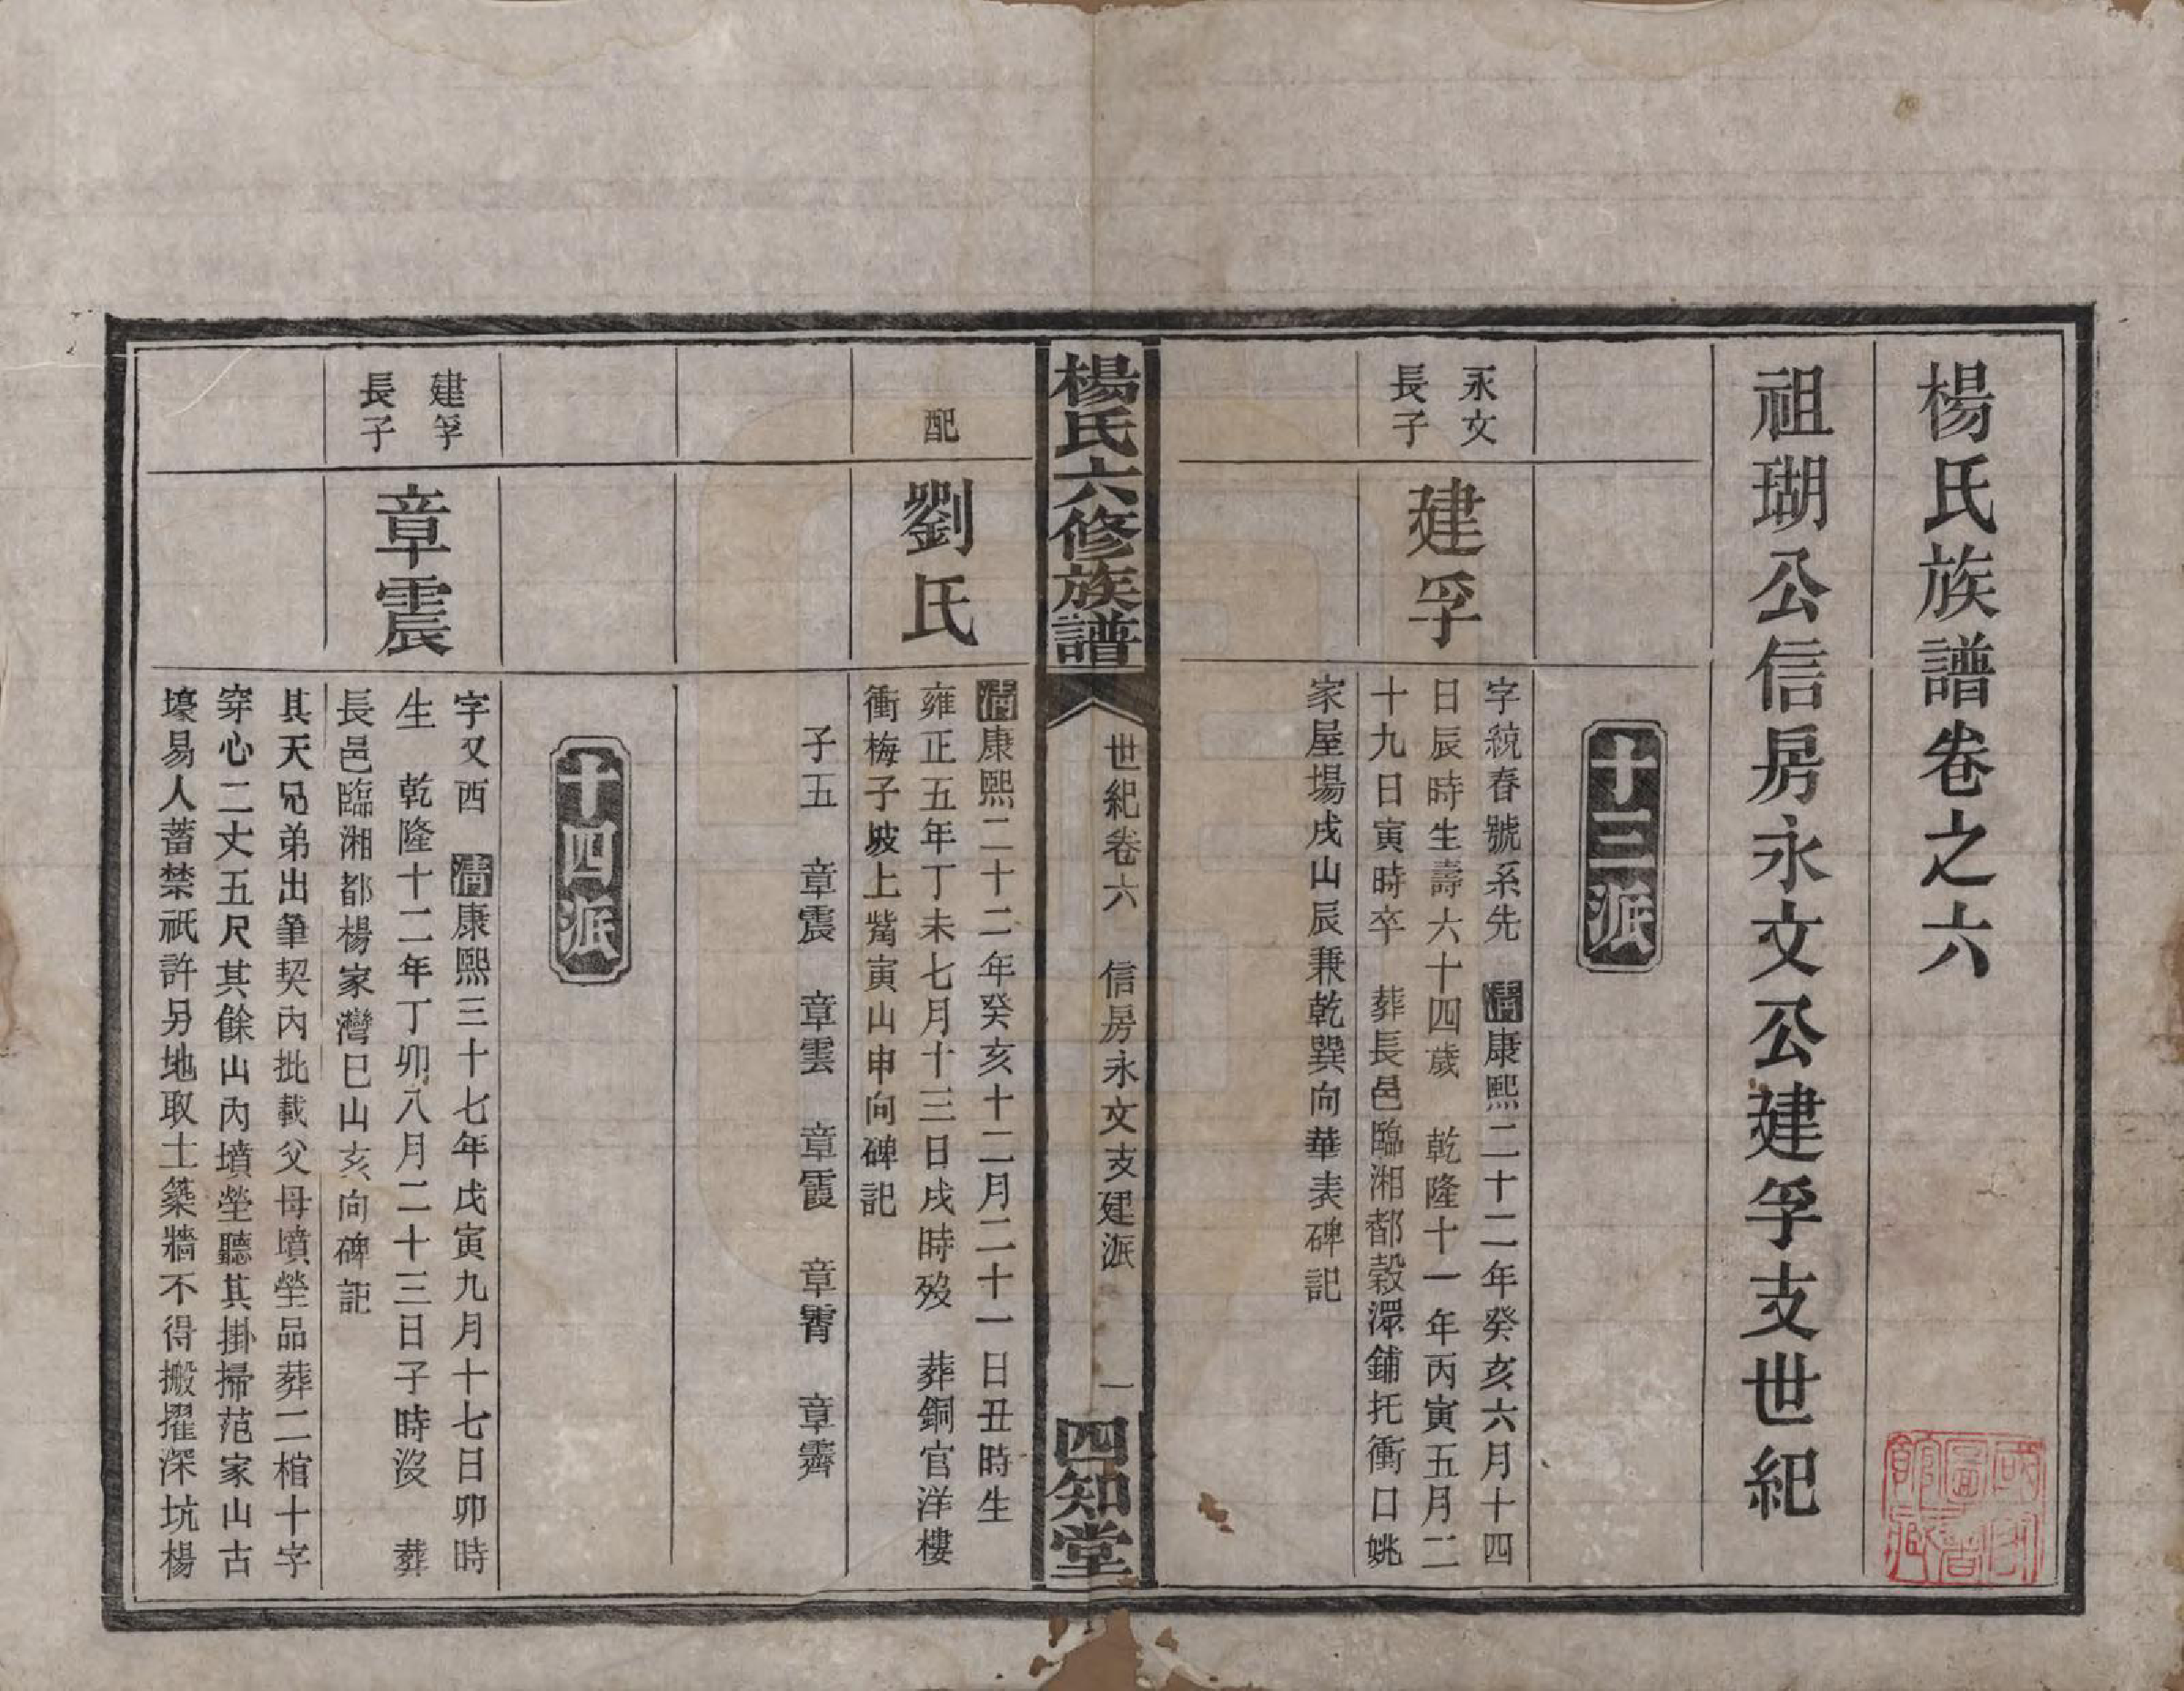 楊氏族譜卷之六
祖瑚公信房永文公建孚支世紀
十三派
永文
長子
建孚
字統春號系先　清康熙二十二年癸亥六月十四
日辰時生壽六十四歲　乾隆十一年丙寅五月二
十九日寅時卒　葬長邑臨湘都穀澴鋪托衝口姚
家屋場戌山辰兼乾巽向華表碑記
楊氏六修族譜
世紀卷六　信房永文支建派
一
四知堂
配
劉氏
清康熙二十二年癸亥十二月二十一日丑時生
雍正五年丁未七月十三日戌時歿　葬銅官洋樓
衝梅子坡上觜寅山申向碑記
子五　章震　章雲　章霞　章霄　章霽
十四派
建孚
長子
章震
字又酉　清康熙三十七年戊寅九月十七日卯時
生　乾隆十二年丁卯八月二十三日子時沒　葬
長邑臨湘都楊家灣巳山亥向碑記
其天兄弟出筆契內批載父母墳塋品葬二棺十字
穿心二丈五尺其餘山內墳塋聽其掛掃范家山古
壕易人蓄禁祇許另地取土築牆不得搬擢深坑楊